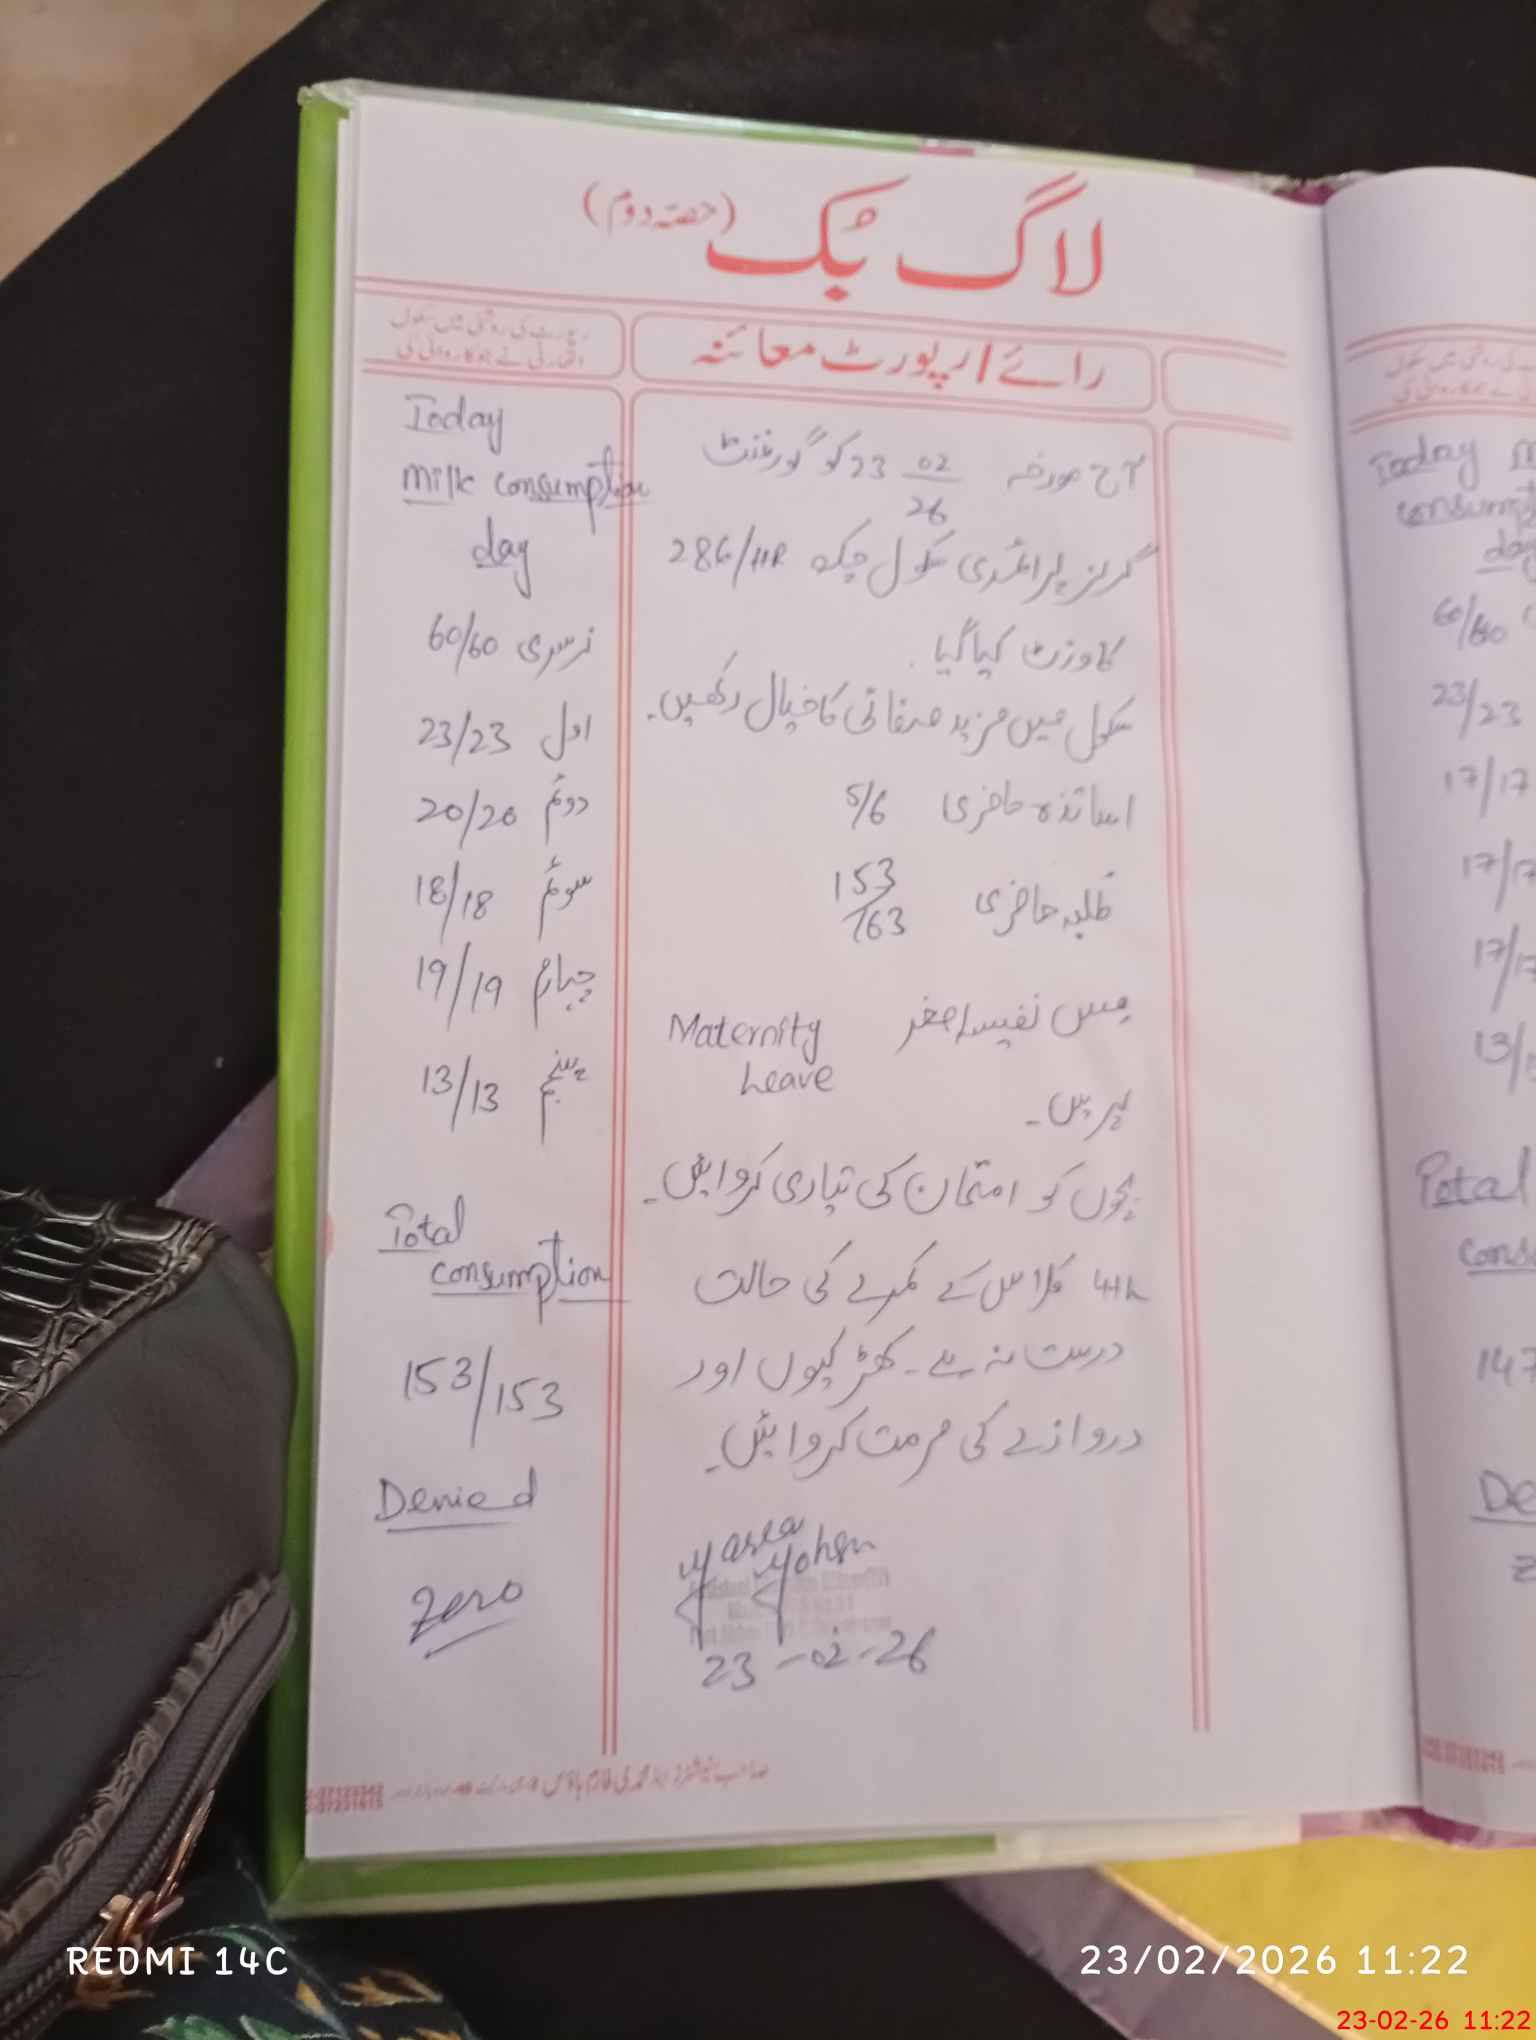 لاگ بک (حصہ دوم)
رائے / رپورٹ معائنہ
رپورٹ کی روشنی میں سکول
اتھارٹی نے جو کاروائی کی
آج مورخہ 23 02/26 کو گورنمنٹ
گرلز پرائمری سکول چک 286/HR
کا وزٹ کیا گیا۔
سکول میں مزید صفائی کا خیال رکھیں۔
اساتذہ حاضری 5/6
طلبہ حاضری 153/163
مس نفیسہ اصغر Maternity
Leave
پر ہیں۔
بچوں کو امتحان کی تیاری کروائیں۔
4th کلاس کے کمرے کی حالت
درست نہ ہے۔ کھڑکیوں اور
دروازے کی مرمت کروائیں۔
23-02-26
Today
Milk consumption
day
نرسری 60/60
اول 23/23
دوئم 20/20
سوئم 18/18
چہارم 19/19
پنجم 13/13
Total
consumption
153/153
Denied
Zero
Today
day
23/23
17/17
Total
REDMI 14C
23/02/2026 11:22
23-02-26 11:22